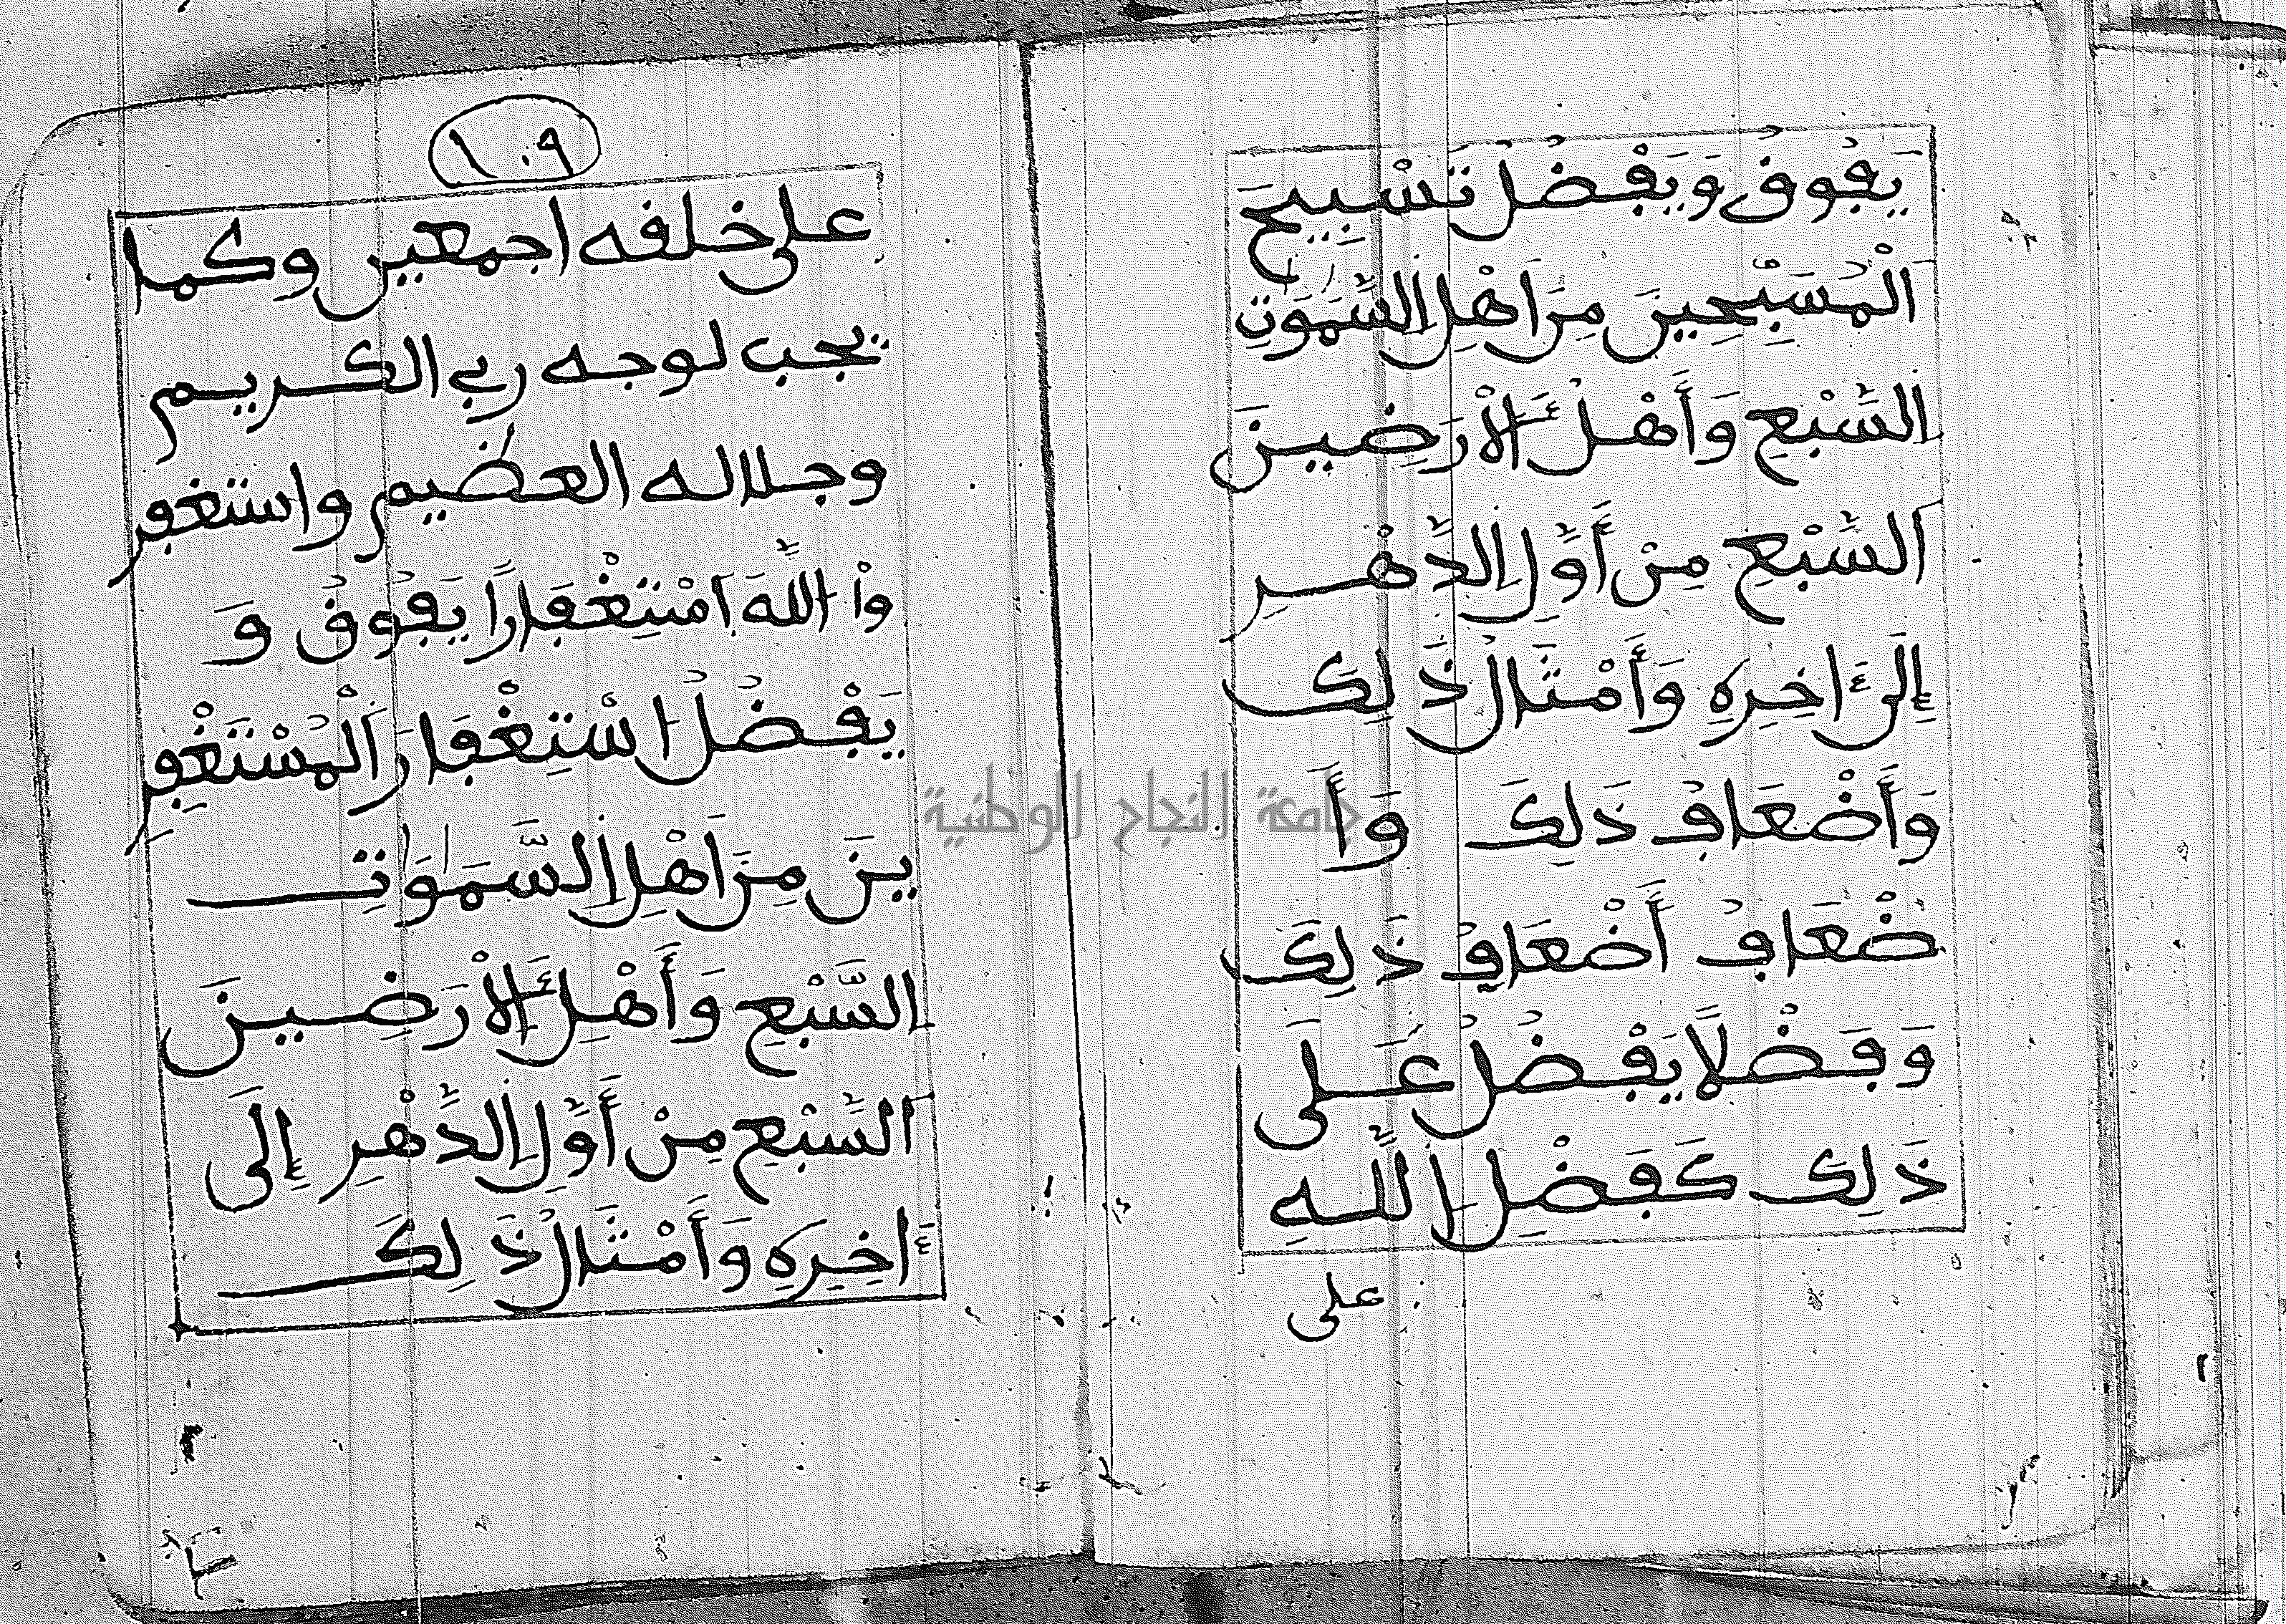 يَفُوقُ وَيَفْضُلُ تَسْبِيحَ
الْمُسَبِّحِينَ مِنَ اهْلِ السَّمَوَتِ
السَّبْعِ وَأَهْلِ الْأَرَضِينَ
السَّبْعِ مِنْ أَوَّلِ الدَّهْرِ
إِلَىٰ ءَاخِرِهِ وَأَمْثَالَ ذَلِكَ
وَأَضْعَافَ ذَلِكَ وَأَ
ضْعَافَ أَضْعَافِ ذَلِكَ
وَفَضْلًا يَفْضُلُ عَلَى
ذَلِكَ كَفَضْلِ اللَّهِ
على
١٠٩
على خلفه اجمعين وكما
يجب لوجه ربي الكريم
وجلاله العضيم واستغفر
وا اللَّهَ اسْتِغْفَارًا يَفُوقُ وَ
يَفْضُلُ اسْتِغْفَارَ الْمُسْتَغْفِرِ
ينَ مِنَ اهْلِ السَّمَوَاتِ
السَّبْعِ وَأَهْلِ الْأَرَضِينَ
السَّبْعِ مِنْ أَوَّلِ الدَّهْرِ إِلَى
ءَاخِرِهِ وَأَمْثَالَ ذَلِكَ
جامعة النجاح الوطنية